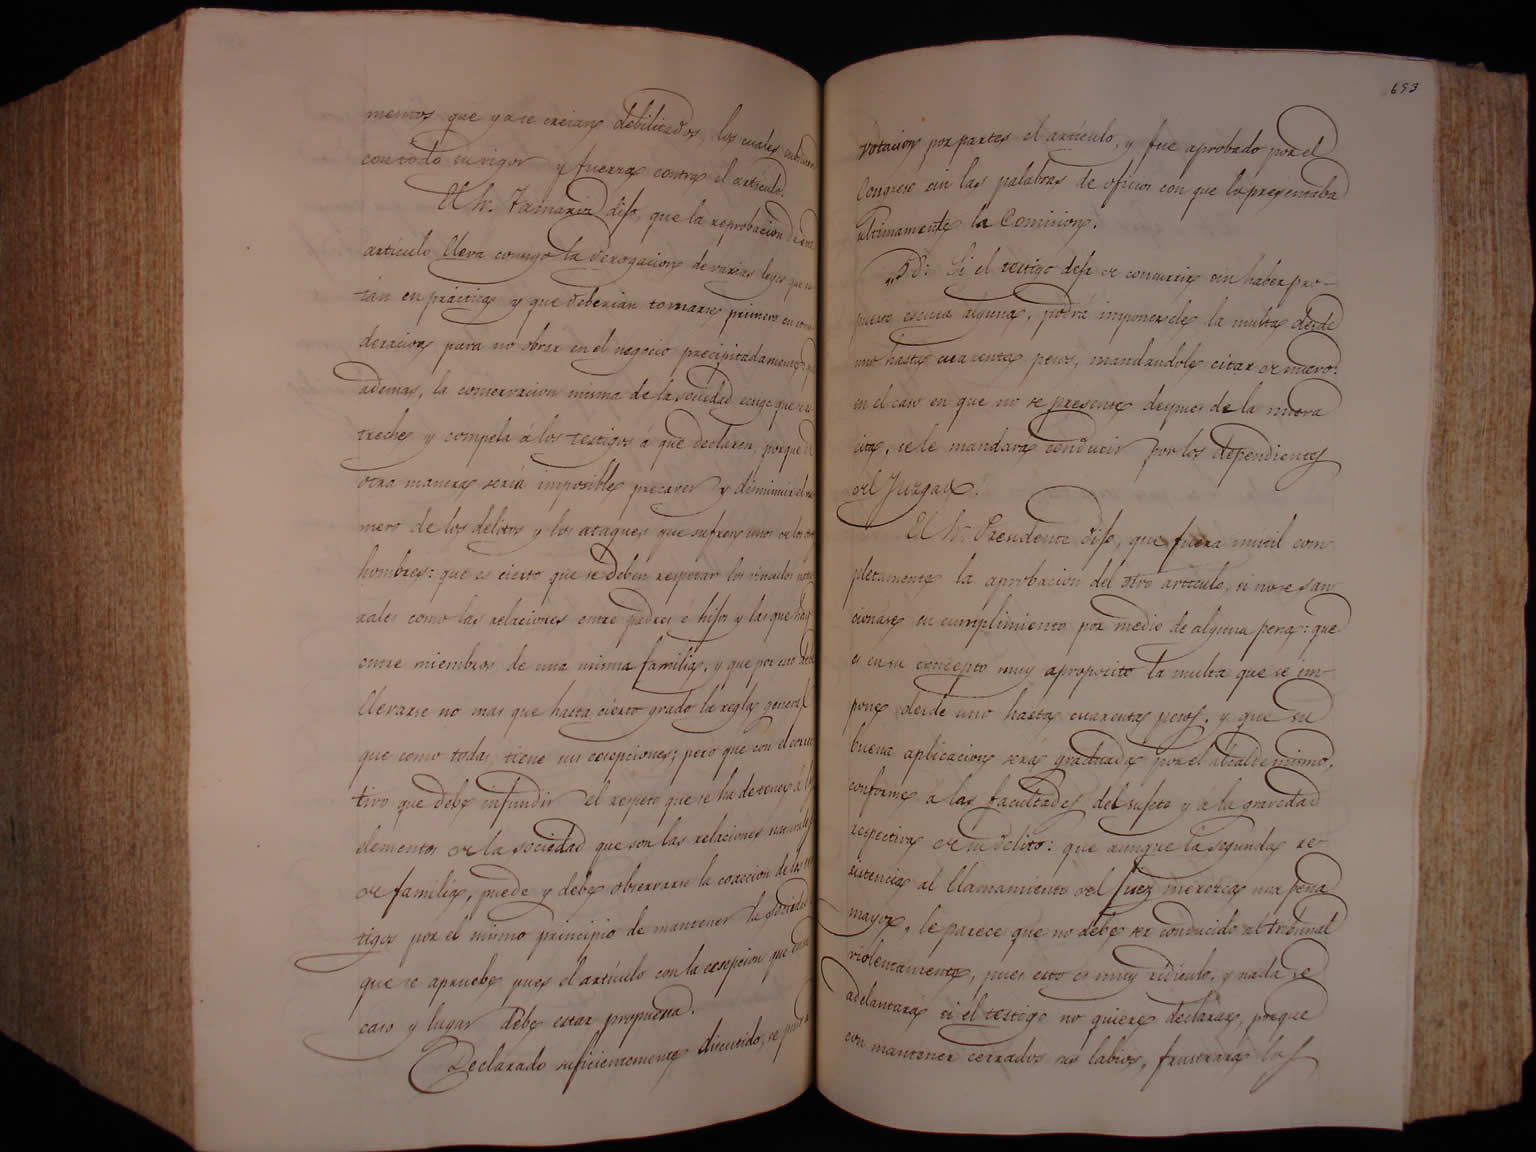 mentos que ya se creian debilitados, los cuales
con todo su vigor y fuerza contra el articulo.
El Sr. Tamariz dijo, que la reprobacion de este
articulo lleva consigo la derogacion de varias leyes que es-
tán en práctica y que deberian tomarse primero en consi-
deracion para no obrar en el negocio precipitadamente
ademas, la conservacion misma de la sociedad ecsige que se es-
treche y compela á los testigos á que declaren, porque de
otra manera seria imposible precaver y disminuir el nu-
mero de los delitos y los ataques que sufren unos de los otros
hombres: que es cierto que se deben respetar los vinculos natu-
rales como las relaciones entre padres é hijos y las que hay
entre miembros de una misma familia, y que por esto debe
llevarse no mas que hasta cierto grado la regla general
que como todas tiene sus ecsepciones; pero que con el correc-
tivo que debe infundir el respeto que se ha de tener á los
elementos de la sociedad que son las relaciones naturales
de familia, puede y debe observarse la coaccion de los tes-
tigos por el mismo principio de mantener la sociedad
que se apruebe pues el articulo con la ecsepcion que en su
caso y lugar debe estar propuesta.
Declarado suficientemente discutido, se puso á
693
votacion por partes el articulo, y fue aprobado por el
Congreso sin las palabras de oficio con que lo presentaba
ultimamente la Comision.
Si el testigo deja de concurrir sin haber pro-
puesto escusa alguna, podrá imponersele la multa desde
uno hasta cuarenta pesos, mandandole citar de nuevo:
en el caso en que no se presente despues de la nueva
cita, se le mandara conducir por los dependientes
del Juzgado.
El Sr. Presidente dijo, que fuera inutil com-
pletamente la aprobacion del otro articulo, si no se san-
cionase su cumplimiento por medio de alguna pena: que
es en su concepto muy aproposito la multa que se im-
pone desde uno hasta cuarenta pesos, y que su
buena aplicacion será graduada por el alcalde mismo,
conforme a las facultades del sujeto y á la gravedad
respectiva de su delito: que aunque la segunda re-
sistencia al llamamiento del Juez merezca una pena
mayor, le parece que no debe ser conducido al tribunal
violentamente, pues esto es muy ridiculo, y nada se
adelantara si el testigo no quiere declarar, porque
con mantener cerrados sus labios, frustrara las